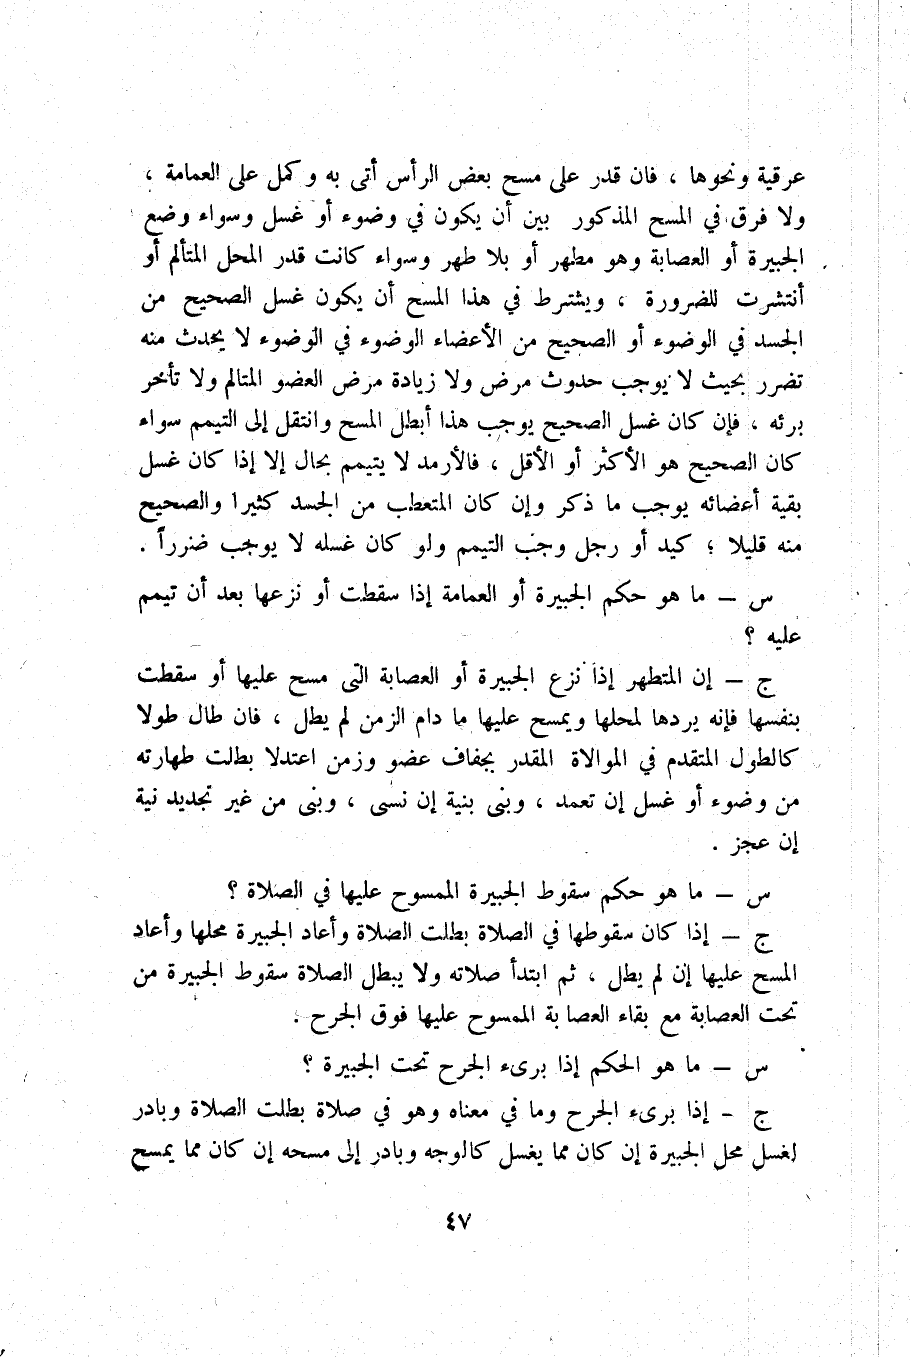 عرقية ونحوها ، فان قدر على مسح بعض الرأس أتى به وكمل على العمامة ،
ولا فرق في المسح المذكور بين أن يكون في وضوء أو غسل وسواء وضع
الجبيرة أو العصابة وهو مطهر أو بلا طهر وسواء كانت قدر المحل المتألم أو
أنتشرت للضرورة ، ويشترط في هذا المسح أن يكون غسل الصحيح من
الجسد في الوضوء أو الصحيح من الأعضاء الوضوء في الوضوء لا يحدث منه
تضرر بحيث لا يوجب حدوث مرض ولا زيادة مرض العضو المتالم ولا تأخر
برئه ، فإن كان غسل الصحيح يوجب هذا أبطل المسح وانتقل إلى التيمم سواء
كان الصحيح هو الأكثر أو الأقل ، فالأرمد لا يتيمم بحال إلا إذا كان غسل
بقية أعضائه يوجب ما ذكر وإن كان المتعطب من الجسد كثيرا والصحيح
منه قليلا ؛ كيد أو رجل وجب التيمم ولو كان غسله لا يوجب ضرراً .
س – ما هو حكم الجبيرة أو العمامة إذا سقطت أو نزعها بعد أن تيمم
عليه ؟
ج – إن المتطهر إذا نزع الجبيرة أو العصابة التى مسح عليها أو سقطت
بنفسها فإنه يردها لمحلها ويمسح عليها ما دام الزمن لم يطل ، فان طال طولا
كالطول المتقدم في الموالاة المقدر بجفاف عضو وزمن اعتدلا بطلت طهارته
من وضوء أو غسل إن تعمد ، وبنى بنية إن نسى ، وبنى من غير تجديد نية
إن عجز .
س – ما هو حكم سقوط الجبيرة الممسوح عليها في الصلاة ؟
ج – إذا كان سقوطها في الصلاة بطلت الصلاة وأعاد الجبيرة محلها وأعاد
المسح عليها إن لم يطل ، ثم ابتدأ صلاته ولا يبطل الصلاة سقوط الجبيرة من
تحت العصابة مع بقاء العصابة الممسوح عليها فوق الجرح .
س – ما هو الحكم إذا برىء الجرح تحت الجبيرة ؟
ج – إذا برىء الجرح وما في معناه وهو في صلاة بطلت الصلاة وبادر
لغسل محل الجبيرة إن كان مما يغسل كالوجه وبادر إلى مسحه إن كان مما يمسح
٤٧